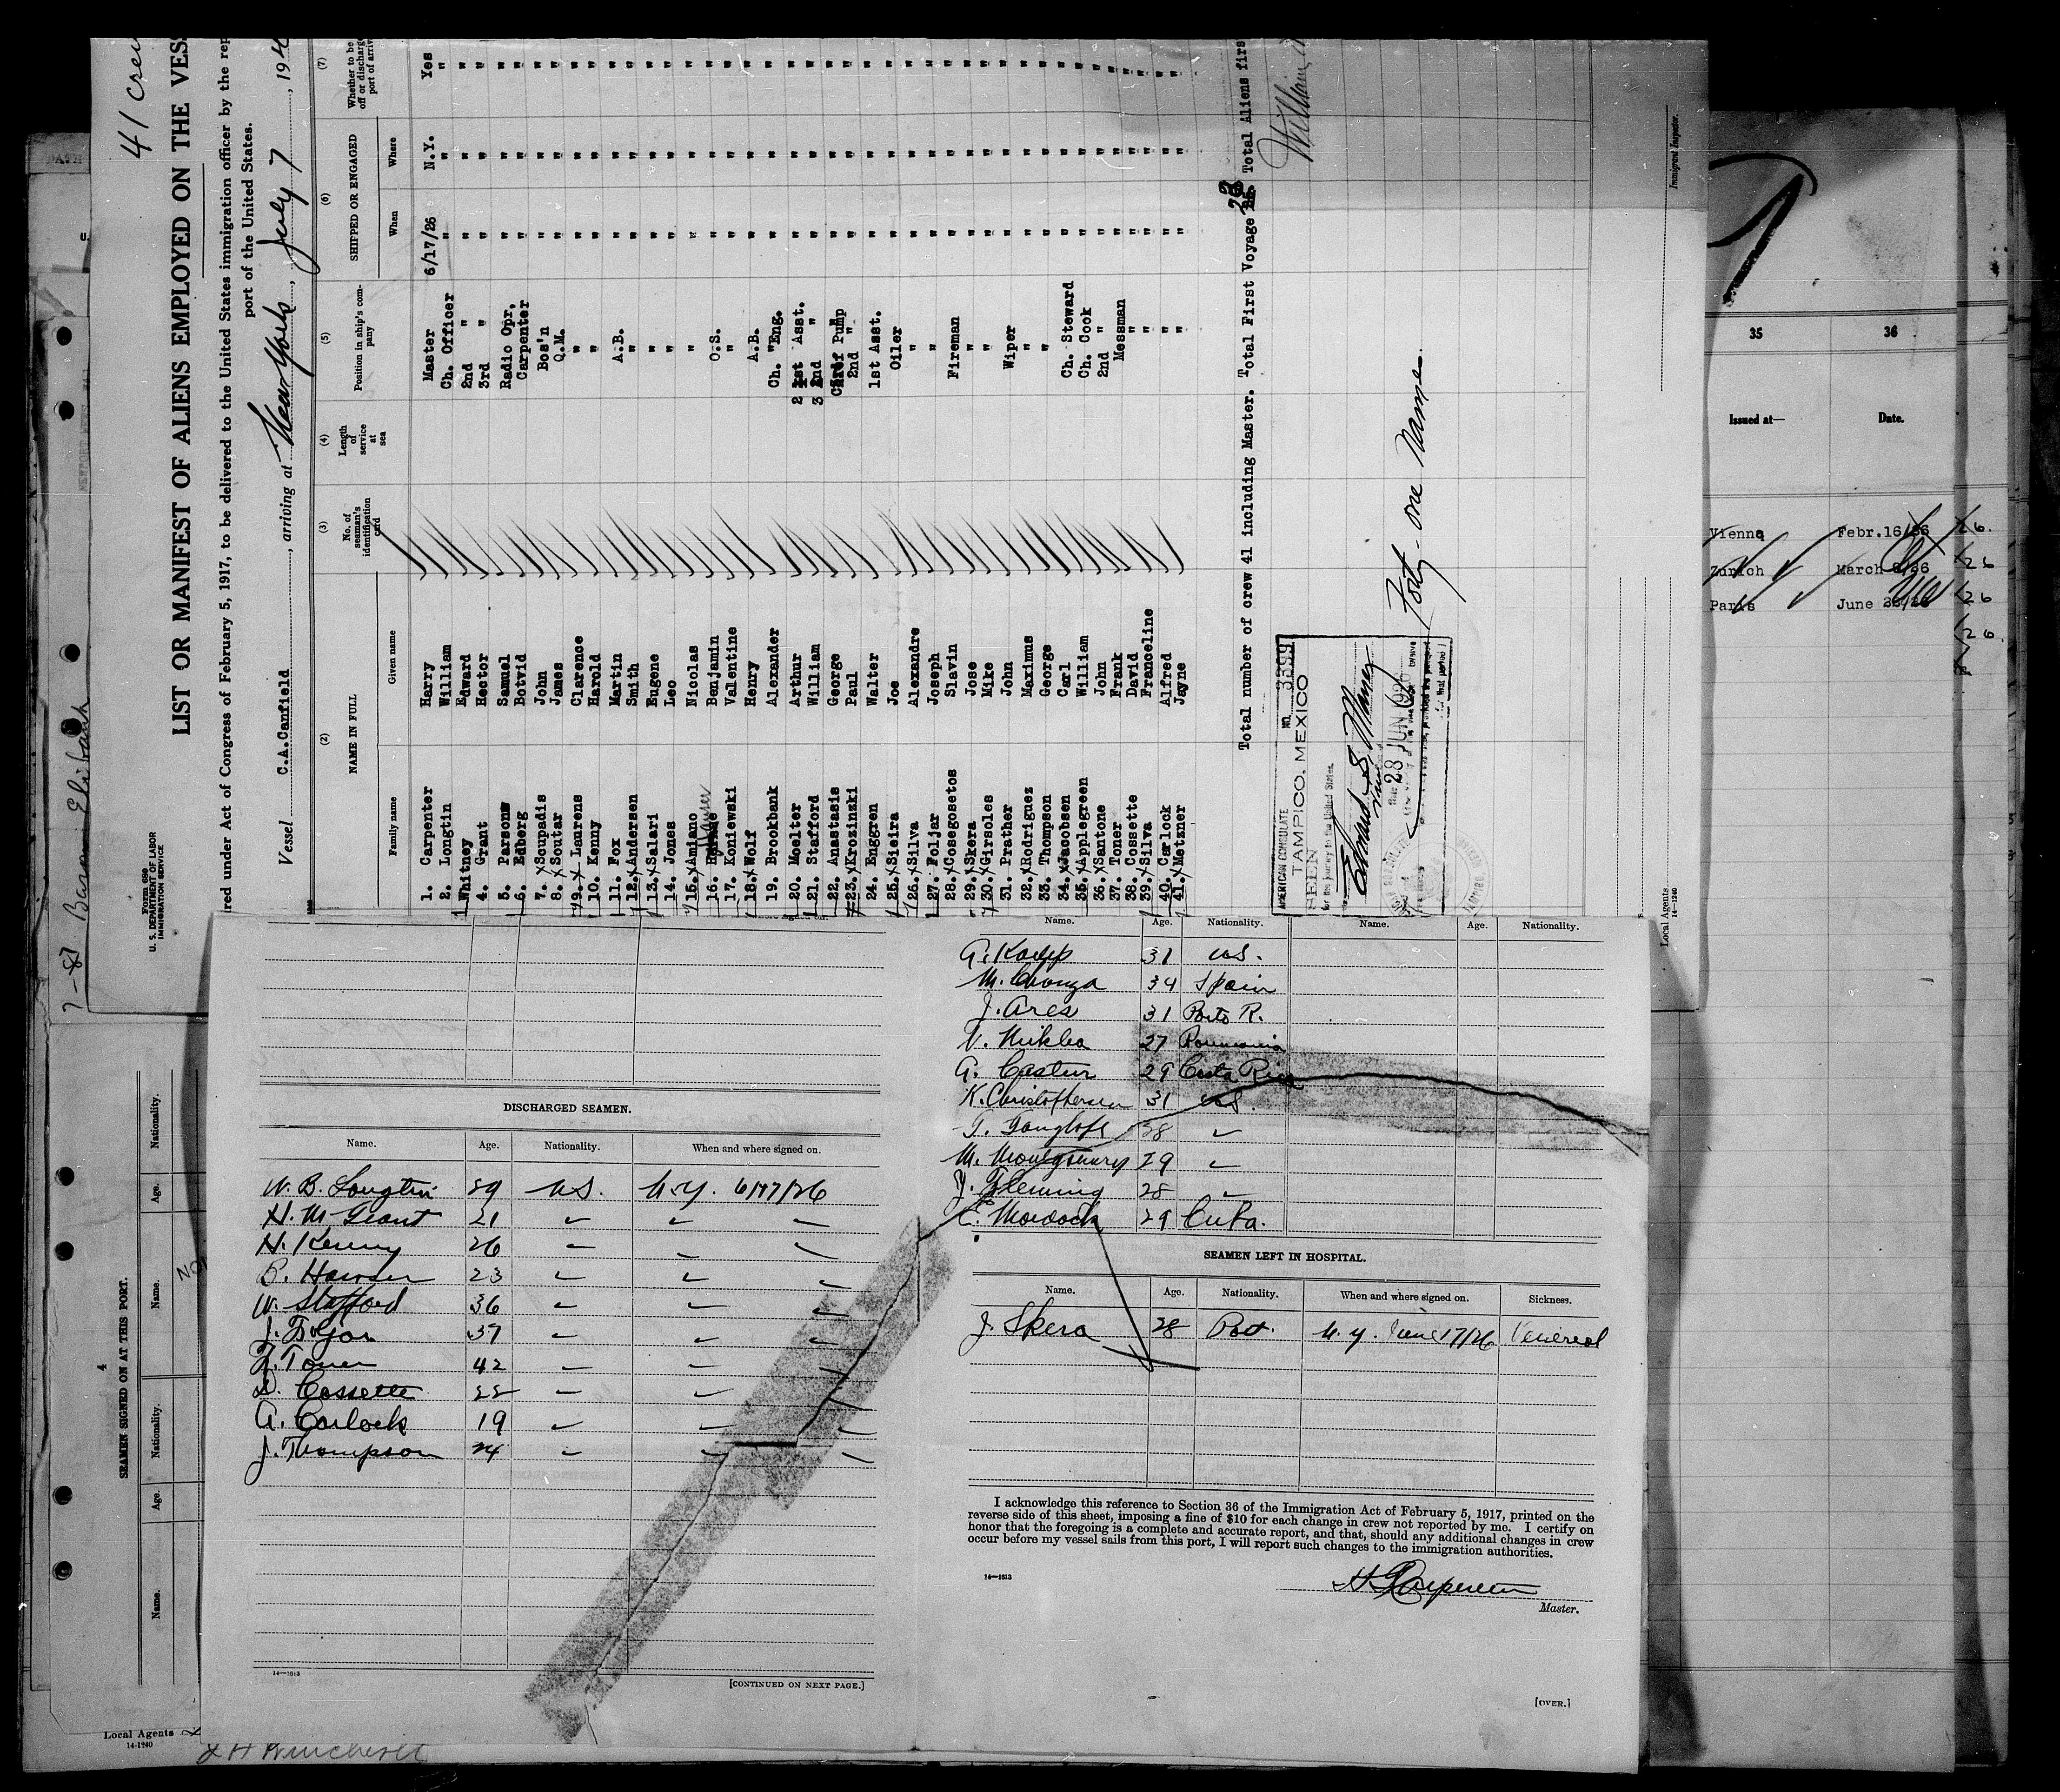 41 crew
Form 680
U. S. DEPARTMENT OF LABOR
IMMIGRATION SERVICE
LIST OR MANIFEST OF ALIENS EMPLOYED ON THE VESS
red under Act of Congress of February 5, 1917, to be delivered to the United States immigration officer by the rep
port of the United States.
Vessel C.A.Canfield, arriving at New York, July 7, 192
(2) (3) (4) (5) (6) (7)
NAME IN FULL
No. of seaman's identification card
Length of service at sea
Position in ship's company
SHIPPED OR ENGAGED
Whether to be
off or discharge
port of arriv
Family name Given name When Where
1. Carpenter Harry Master 6/17/26 N.Y. Yes
2. Longtin William Ch. Officer " " "
Whitney Edward 2nd " " " "
4. Grant Hector 3rd " " " "
5. Parsons Samuel Radio Opr, " " "
6. Edberg Botvid Carpenter " " "
7. x Scupadis John Bos'n " " "
8. x Soutar James Q.M. " " "
9. x Laurens Clarence " " " "
10. Kenny Harold " " " "
11. Fox Martin A.B. " " "
12. x Andersen Smith " " " "
13. x Salari Eugene " " " "
14. Jones Leo " " " "
15. x Amiano Nicolas " " " "
16. Benjamin O.S. " " "
17. Koniewski Valentine " " " "
18. x Wolf Henry A.B. " " "
19. Brookbank Alexander Ch. "Eng. " " "
20. Moelter Arthur 2 1st Asst. " " "
21. Stafford William 3 2nd " " " "
22. Anastasis George Chief Pump " " "
23. x Krozinzki Paul 2nd " " " "
24. Enggren Walter 1st Asst. " " "
25. x Sieira Joe Oiler " " "
26. x Silva Alexandre " " " "
27. Foljar Joseph " " " "
28. x Cosegosetos Slavin Fireman " " "
29. x Skera Jose " " " "
30. x Girsoles Mike " " " "
31. Prather John Wiper " " "
32. x Rodriguez Maximus " " " "
33. Thompson George " " " "
34. x Jacobsen Carl Ch. Steward " " "
35. x Applegreen William Ch. Cook " " "
36. x Santone John 2nd " " " "
37. Toner Frank Messman " " "
38. Cossette David " " " "
39. x Silva Franceline " " " "
40. Carlock Alfred " " " "
41. x Metzner Jayne " " " "
Total number of crew 41 including Master. Total First Voyage 28 Total Aliens firs
William
AMERICAN CONSULATE NO. 3399
TAMPICO, MEXICO
SEEN
for the journey to the United States.
Edward S. Maney
28 JUN 1926
Forty-one Names.
Immigrant Inspector.
Local Agents
14-1240
35 36
Issued at— Date.
Vienna Febr.16/26
Zurich March
Paris June
26.
26
26
26
4
SEAMEN SIGNED ON AT THIS PORT.
Name. Age. Nationality. Name. Age. Nationality.
Local Agents
14-1240
DISCHARGED SEAMEN.
Name. Age. Nationality. When and where signed on.
W. B. Longtin 29 U.S. N.Y. 6/17/26
H. M Grant 21
H. Kenny 26
B. Hawser 23
W. Stafford 36
J. Foljar 37
F. Toner 42
D. Cossette 22
A. Carlock 19
J. Thompson 24
14—1613
[CONTINUED ON NEXT PAGE.]
Name. Age. Nationality. Name. Age. Nationality.
G. Kaupp 31 U.S.
M. Chonza 34 Spain
J. Ares 31 Porto R.
V. Miklea 27 Roumania
G. Castur 29 Costa Rica
K. Christophersen 31 U.S.
T. Gangloff 38
M. Montgomery 29
J. Fleming 28
C. Mordock 29 Cuba.
SEAMEN LEFT IN HOSPITAL.
Name. Age. Nationality. When and where signed on. Sickness.
J. Skera 28 Port. N.Y. June 17/26 Venereal
I acknowledge this reference to Section 36 of the Immigration Act of February 5, 1917, printed on the
reverse side of this sheet, imposing a fine of $10 for each change in crew not reported by me. I certify on
honor that the foregoing is a complete and accurate report, and that, should any additional changes in crew
occur before my vessel sails from this port, I will report such changes to the immigration authorities.
14—1613
H Carpenter
Master.
[OVER.]